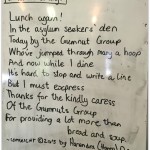 Lunch again!
In the asylum seekers' den
Today by the Gumnut Group
Who've jumped through many a hoop
And now while I dine
It's hard to stop and write a line
But I must express
Thanks for the kindly caress
Of the Gumnuts Group
For providing a lot more than
bread and soup.
COPYRIGHT © 2013 by Harindra